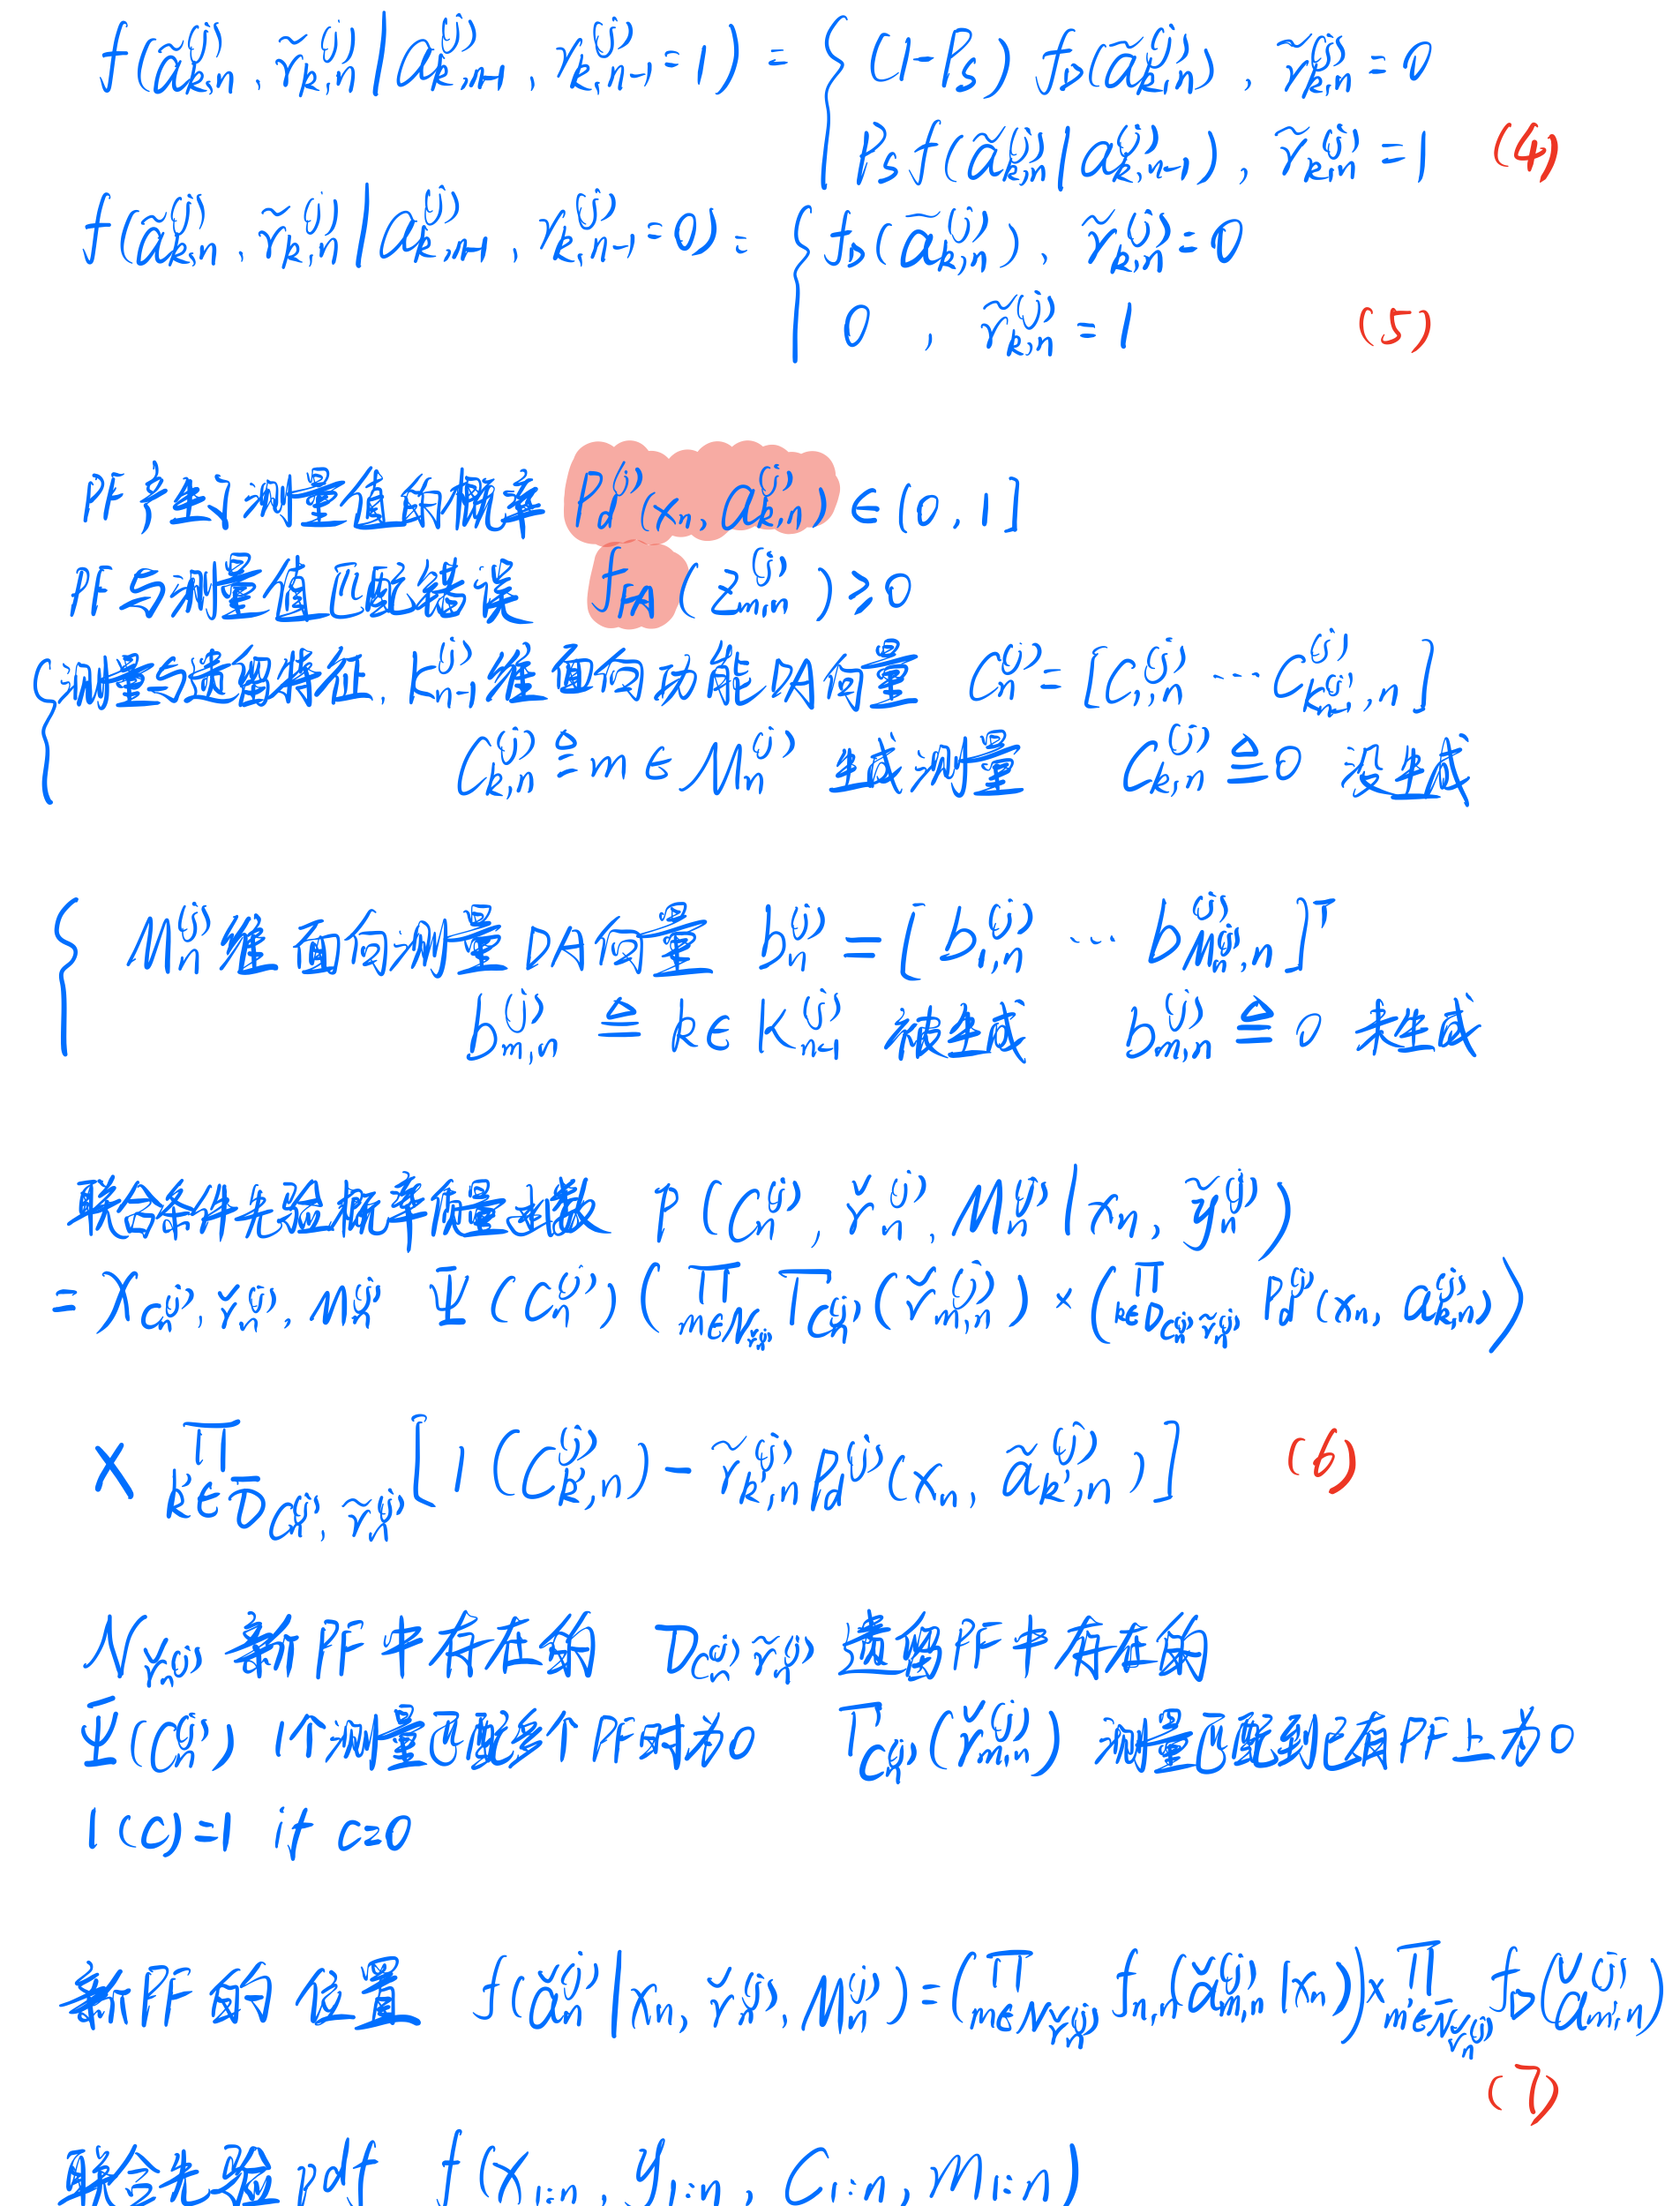 f(ã_{k,n}^{(j)}, r̃_{k,n}^{(j)} | a_{k,n-1}^{(j)}, r_{k,n-1}^{(j)}=1) = { (1-Ps) f_D(ã_{k,n}^{(j)}), r̃_{k,n}^{(j)}=0
Ps f(ã_{k,n}^{(j)} | a_{k,n-1}^{(j)}), r̃_{k,n}^{(j)}=1 (4)
f(ã_{k,n}^{(j)}, r̃_{k,n}^{(j)} | a_{k,n-1}^{(j)}, r_{k,n-1}^{(j)}=0) = { f_D(ã_{k,n}^{(j)}), r̃_{k,n}^{(j)}=0
0, r̃_{k,n}^{(j)}=1 (5)
PF产生了测量值的概率 P_d^{(j)}(x_n, a_{k,n}^{(j)}) ∈ (0,1]
PF与测量值匹配错误 f_{FA}(z_{m,n}^{(j)}) ≥ 0
{ 测量与遗留特征, K_{n-1}^{(j)}维面向功能DA向量 C_n^{(j)} = [C_{1,n}^{(j)} ... C_{K_{n-1}^{(j)},n}^{(j)}]
C_{k,n}^{(j)} ≜ m ∈ M_n^{(j)} 生成测量 C_{k,n}^{(j)} ≜ 0 没生成
{ M_n^{(j)}维面向测量DA向量 b_n^{(j)} = [b_{1,n}^{(j)} ... b_{M_n^{(j)},n}^{(j)}]^T
b_{m,n}^{(j)} ≜ k ∈ K_{n-1}^{(j)} 被生成 b_{m,n}^{(j)} ≜ 0 未生成
联合条件先验概率质量函数 P(C_n^{(j)}, r̆_n^{(j)}, M_n^{(j)} | x_n, ỹ_n^{(j)})
= X_{C_n^{(j)}, r̆_n^{(j)}, M_n^{(j)}} Ψ(C_n^{(j)}) (∏_{m∈N_{r̆_n^{(j)}}} Γ_{C_n^{(j)}}(r̆_{m,n}^{(j)}) × (∏_{k∈D_{C_n^{(j)}, r̃_n^{(j)}}} P_d^{(j)}(x_n, a_{k,n}^{(j)}))
× ∏_{k'∈D̄_{C_n^{(j)}, r̃_n^{(j)}}} [1(C_{k',n}^{(j)}) - r̃_{k',n}^{(j)} P_d^{(j)}(x_n, ã_{k',n}^{(j)})] (6)
N_{r̆_n^{(j)}} 新PF中存在的 D_{C_n^{(j)}, r̃_n^{(j)}} 遗留PF中存在的
Ψ(C_n^{(j)}) 1个测量匹配多个PF时为0 Γ_{C_n^{(j)}}(r̆_{m,n}^{(j)}) 测量匹配到已有PF上为0
1(c)=1 if c=0
新PF的位置 f(ă_n^{(j)} | x_n, r̆_n^{(j)}, M_n^{(j)}) = (∏_{m∈N_{r̆_n^{(j)}}} f_{n,n}(ă_{m,n}^{(j)} | x_n)) × ∏_{m'∈N̄_{r̆_n^{(j)}}} f_D(ă_{m',n}^{(j)})
(7)
联合先验pdf f(x_{1:n}, y_{1:n}, C_{1:n}, m_{1:n})